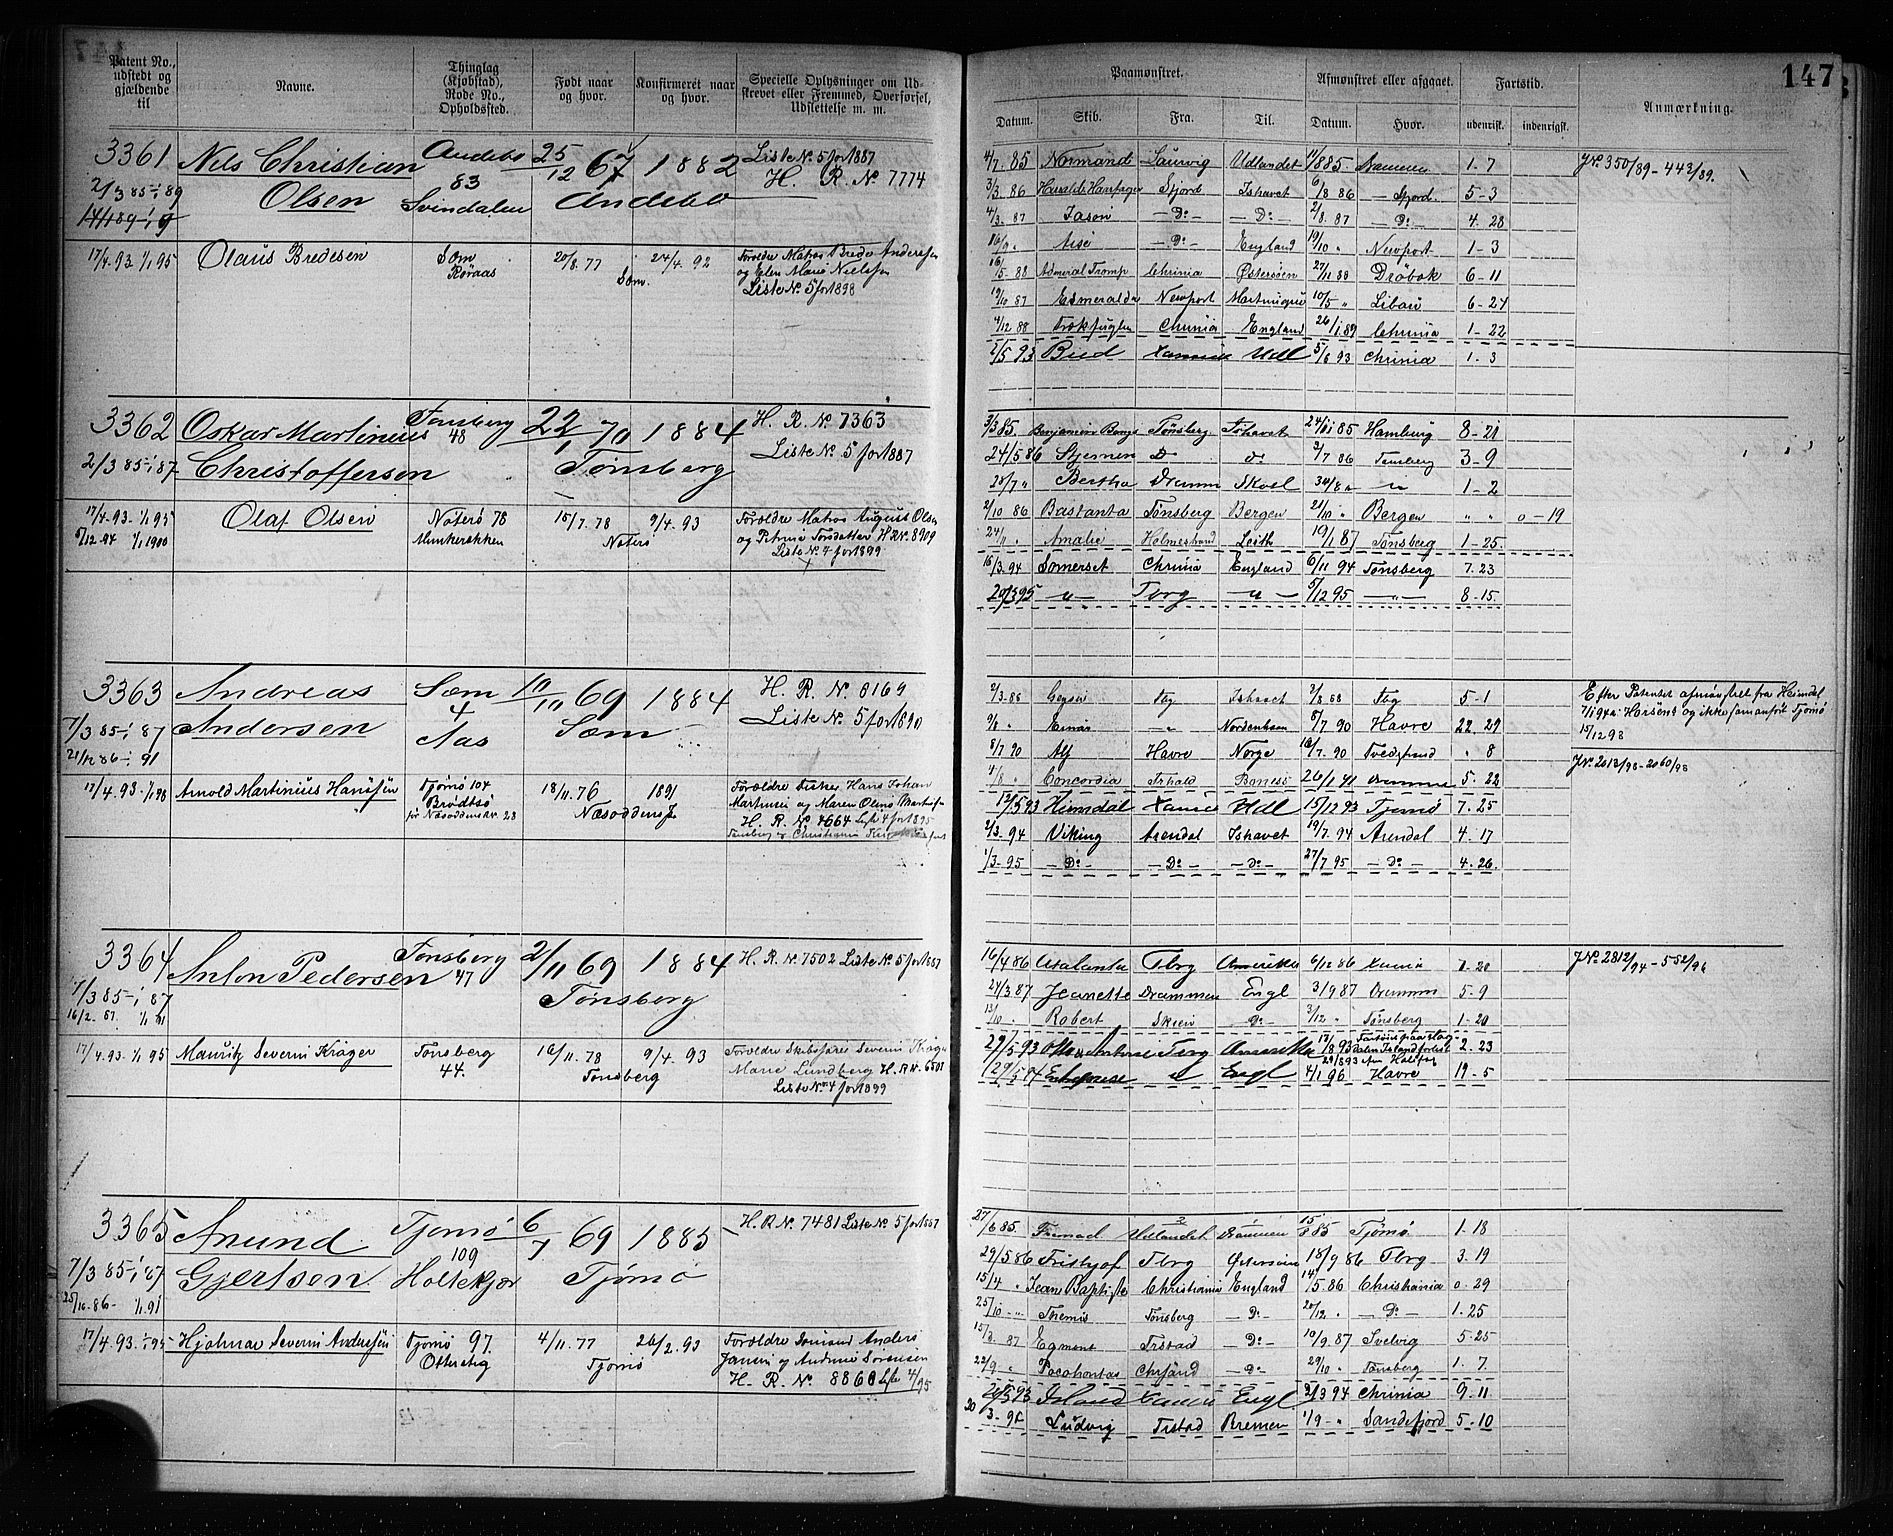 147
Patent No., udstedt og gjældende til
Navne.
Thinglag (Kjøbstad), Rode No., Opholdssted.
Født naar og hvor.
Konfirmeret naar og hvor.
Specielle Oplysninger om Udskrevet eller Fremmed, Overførsel, Udslettelse m. m.
Paamønstret.
Afmønstret eller afgaaet.
Fartstid.
Anmærkning.
Datum. Skib. Fra. Til. Datum. Hvor. udenrisk. indenrigsk.
3361 Nels Christian Andebo 25/12 67 1882 Liste No. 5 for 1887
2/3 85-1/1 89 Olsen 83 Svindalen Andebo H. R. No 7774
17/4.93 1/1 95 Olaus Bredesen Sem Røraas 20/8.77 24/4.92 Sem. Forældre Matros Brede Andersen
og Elen Marie Nielsen
Liste No. 5 for 1898
4/7.85 Normand Laurvig Udlandet 11/8 85. Drammen 1.7 J No. 350/89 - 443/89.
3/3 86 Harald Haarfager Sfjord Ishavet 6/8 86 Sfjord. 5-3
4/3. 87 Jason -Do- -Do- 2/8.87 -Do- 4.28
16/9 " -Do- England 19/10 " Newport 1-3
16/5.88 Admeral Tromp Chrinia Østersøen 27/11 88 Drøbak 6-11
19/10 87 Esmeralda Newport Martinique 10/5 " Libau 6-24
4/12 88 Trækfuglen Chrinia England 26/1.89 Chrinia 1-22
2/5 93 Udl 5/6 93 Chrinia 1.3
3362 Oskar Martinius Tønsberg 48 22/1 70 1884 H. R. No 7363
2/3 85-1/1 87 Christoffersen Tønsberg Liste No. 5 for 1887
17/4.93-1/1 95 Olaf Olsen Nøterø 78 15/7.78 9/4.93 Forældre Matros August Olsen
6/12.94 1/1 1900 Munkerekken Nøterø og Petrine Torsdatter H R No. 8909
Liste No. 4 for 1899
3/3 85. Tønsberg Ishavet 24/11 85 Hamburg 8-21
24/5 86 Stjernen Do Do 2/7 86 Tønsberg 3-9
28/7 " Bertha Dramm 30/8 " 1-2
2/10 86 Bastanta Tønsberg Bergen 21/10 " Bergen " " 0-19
24/11 " Amalie Holmestrand Leith 19/1 87 Tønsberg 1-25.
16/3.94 Somerset Chrinia England 6/11 94 Tønsberg 7.23
20/3 95 -"- Tbrg -"- 5/12 95 -"- 8-15.
3363 Andreas Sem 4 10/11 69 1884 H. R. No. 8169
7/3 85-1/1 87 Andersen Aas Sem Liste No. 5 for 1890
21/12 86-1/1 91
17/4.93.-1/1 98 Arnold Martinius Hansen Tjømø 104 18/11.76 1891 Forældre Fisker Hans Johan
Brødtsø Næsoddens Martinsen og Maren Oline
H. R. No 4664 4 for 1895
2/3.86 Tbg Ishavet 3/8.88 Tbg 5-1
9/8 " Einar -"- Nordenham 6/7 90 Havre 22.29
8/7 90 Alf Havre Norge 19/7.90 Tvedstrand " 8
4/8 " Concordia 26/1 91 5.22
12/5 93 Heimdal Udl 15/12 93 Tjømø 7.25
2/3.94 Viking Arendal Ishavet 19/7.94 Arendal 4.17
1/3-95 -Do- -Do- -Do- 27/7 95 -Do- 4.26.
Efter Patentet afmønstret fra Heimdal
7/1 94 i Horsens og ikke fornanført Tjømø
15/12 93
J No. 2013/93-2060/93
3364 Anton Pedersen Tønsberg 47 2/11 69 1884 H. R. No 7502 Liste No 5 for 1887
7/3 85-1/1 87 Tønsberg
16/2.87. 1/1 91
17/4.93.1/1 95 Mauritz Severin Krøger Tønsberg 44. 16/11.78 9/4.93 Tønsberg Forældre Skibsfører Severin Krøger
Marie Lundberg H. R. No. 6501
Liste No. 4 for 1899
16/4 86 Atalanta Tbrg Amerika 6/12 86 7.20 J No 2812/94-552/96
24/3 87 Jeanette Drammen Engl 3/9 87 Drammen 5.9
13/10 " Robert Skien Do 3/12 " Tønsberg 1-20
29/5.93 Tbrg Amerika 17/8 93 2.23
29/5 94 Enterprise " Engl 4/1 96 Havre 19-5
3365 Anund Tjømø 109 6/7 69 1885 H. R No. 7481 Liste No 5 for 1887
7/3 85-1/1 87 Gjertsen Holtekjær Tjømø
25/10-86- 1/1 91
17/4.93.-1/1 95 Hjalmar Severin Andersen Tjømø 97. 4/11.77 26/2.93 Forældre Sømand Anders
Otterstig Tjømø Jansen og Andrine Sørensen
H. R. No. 8860 4/95
27/6 85. Fremad Udlandet Drammen 15/8 85 Tjømø 1.18
29/5 86 Frithjof Tbrg Østersøen 18/9 86 Tbrg 3.19
15/4 " Jean Baptiste Christiania England 14/5.86 Christiania 0.29
25/10 -"- Themis Tønsberg -Do- 20/12 " -Do- 1.25
15/3. 87 Egmont Frstad -Do- 10/9.87 Svelvig 5.25
22/9 " Pocahontas Chrsand -Do- 29/10 " Tønsberg 1.7
26/5 93 Island Engl 2/3 94 Chrinia 9.11
30/3-95 Ludvig Frstad Bremen 1/9 - " Sandefjord 5.10